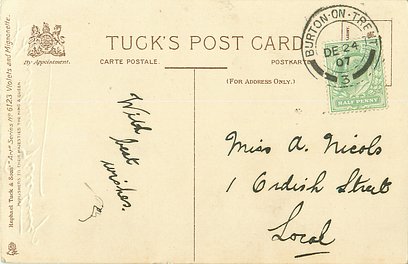 TUCK'S POST CARD
By Appointment.
CARTE POSTALE.
POSTKARTE
(FOR ADDRESS ONLY.)
BURTON-ON-TRENT
DE 24
07
3
HALF PENNY
Raphael Tuck & Sons' "Art" Series No 6123 Violets and Mignonette.
PUBLISHERS TO THEIR MAJESTIES THE KING & QUEEN.
With best
wishes.
Miss A. Nicols
1 Ordish Street
Local